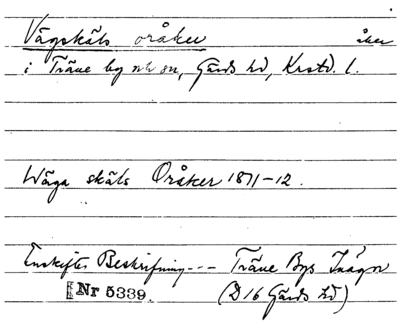 Vägskäls oråker åker
i Träne by och sn, Gärds hd, Krstd. l.
Wäga skäls Oråker 1811-12.
Enskiftes Beskrifning --- Träne Bys Inägor
Nr 5339. (D16 Gärds hd)